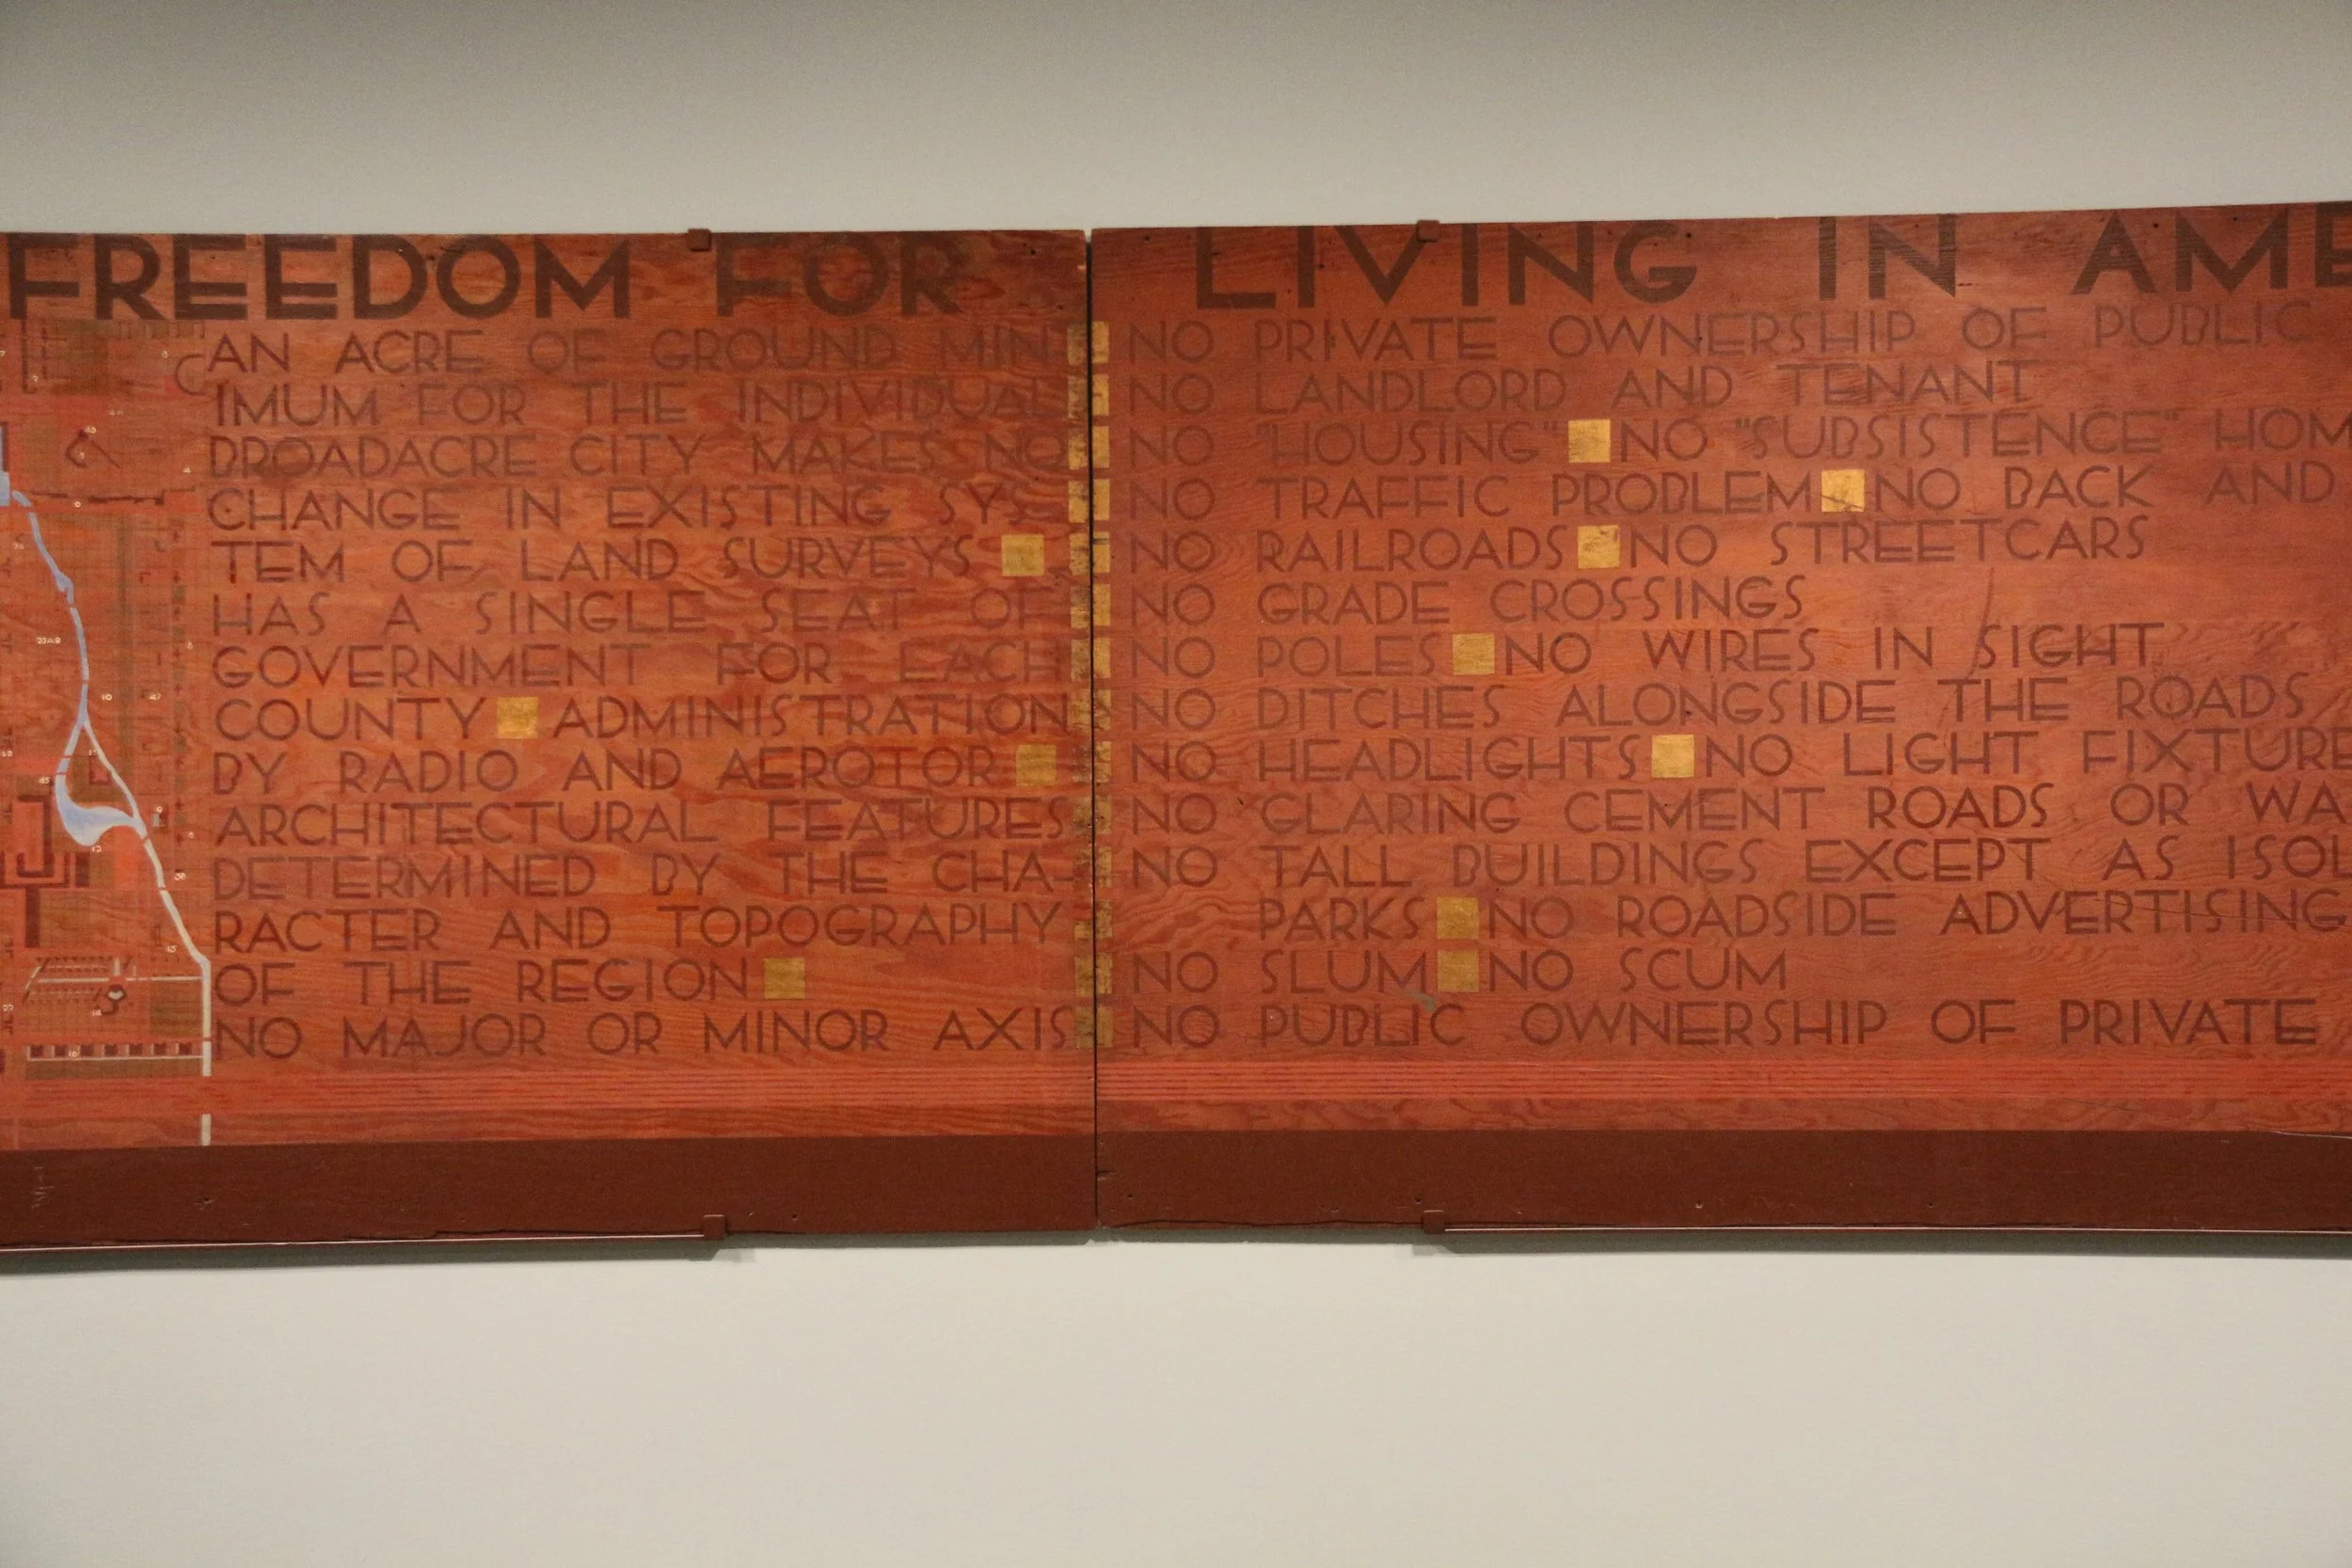 FREEDOM FOR LIVING IN AME
AN ACRE OF GROUND MIN-
IMUM FOR THE INDIVIDUAL
BROADACRE CITY MAKES NO
CHANGE IN EXISTING SYS-
TEM OF LAND SURVEYS
HAS A SINGLE SEAT OF
GOVERNMENT FOR EACH
COUNTY ADMINISTRATION
BY RADIO AND AEROTOR
ARCHITECTURAL FEATURES
DETERMINED BY THE CHA-
RACTER AND TOPOGRAPHY
OF THE REGION
NO MAJOR OR MINOR AXIS
NO PRIVATE OWNERSHIP OF PUBLIC
NO LANDLORD AND TENANT
NO "HOUSING" NO "SUBSISTENCE" HOM
NO TRAFFIC PROBLEM NO BACK AND
NO RAILROADS NO STREETCARS
NO GRADE CROSSINGS
NO POLES NO WIRES IN SIGHT
NO DITCHES ALONGSIDE THE ROADS
NO HEADLIGHTS NO LIGHT FIXTURE
NO GLARING CEMENT ROADS OR WA
NO TALL BUILDINGS EXCEPT AS ISOL
PARKS NO ROADSIDE ADVERTISING
NO SLUM NO SCUM
NO PUBLIC OWNERSHIP OF PRIVATE